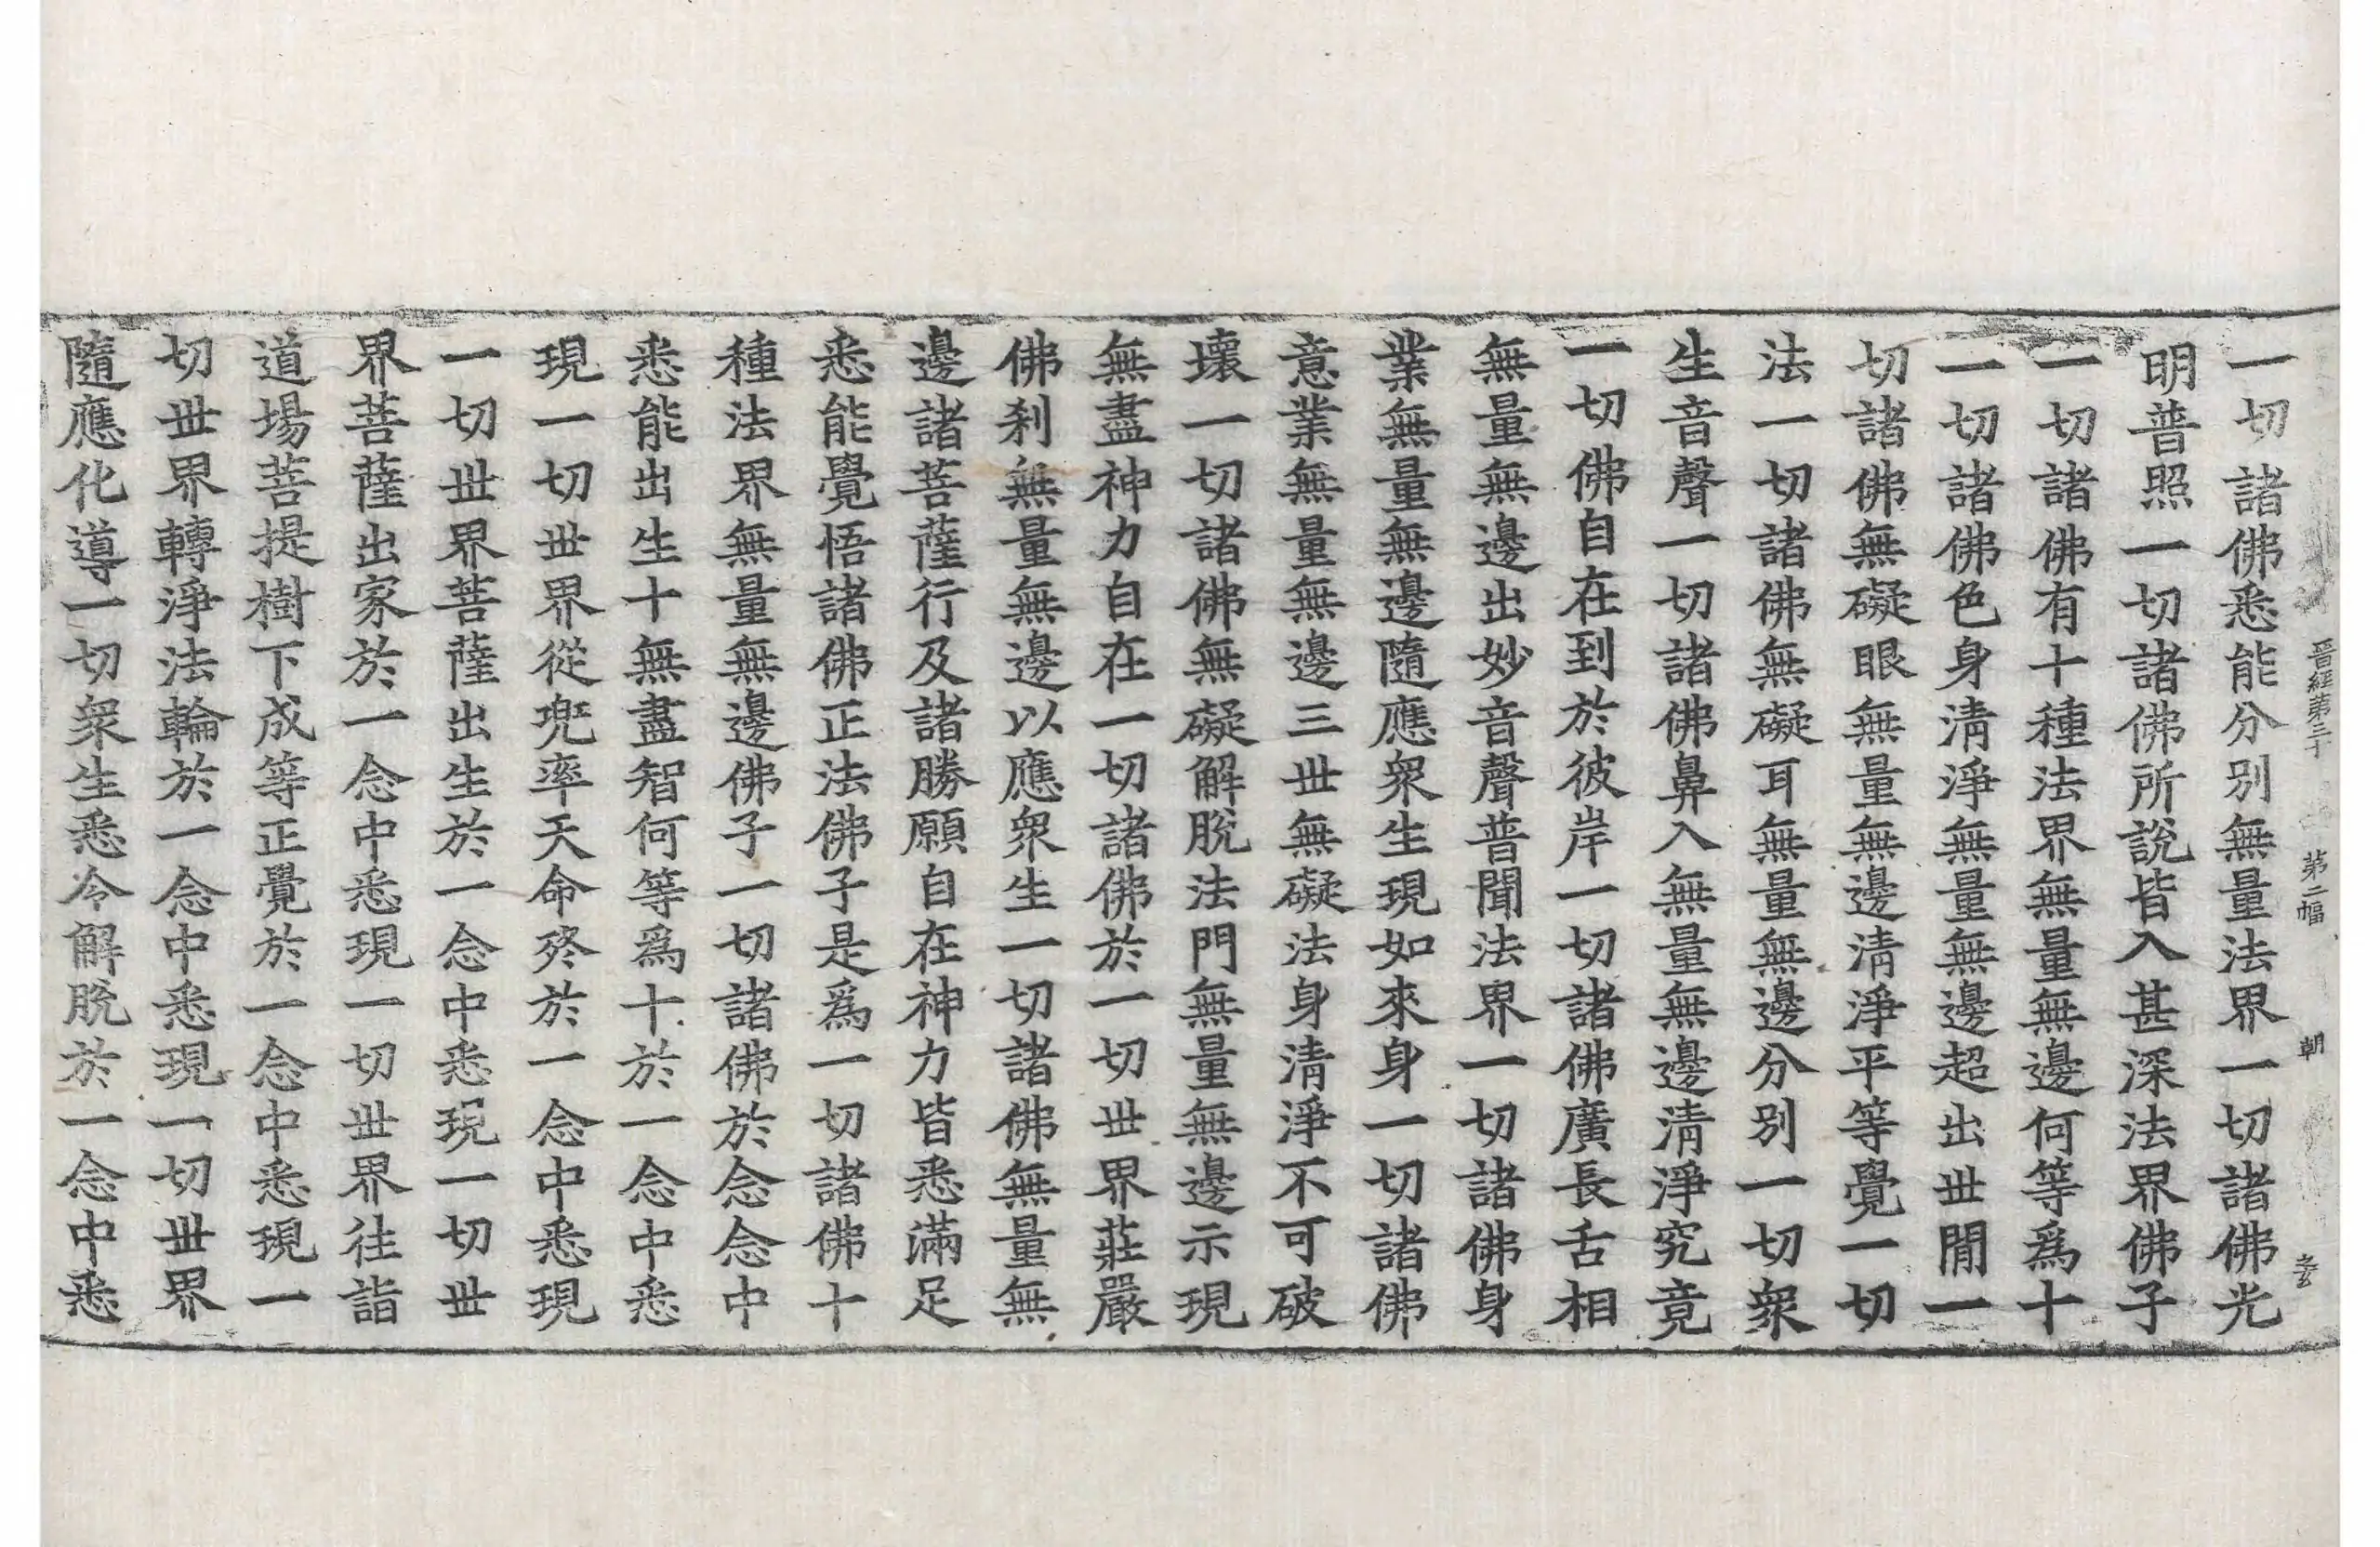 晉經第三十 第二幅 朝
一切諸佛悉能分別無量法界一切諸佛光
明普照一切諸佛所說皆入甚深法界佛子
一切諸佛有十種法界無量無邊何等爲十
一切諸佛色身清淨無量無邊超出丗閒一
切諸佛無礙眼無量無邊清淨平等覺一切
法一切諸佛無礙耳無量無邊分別一切衆
生音聲一切諸佛鼻入無量無邊清淨究竟
一切佛自在到於彼岸一切諸佛廣長舌相
無量無邊出妙音聲普聞法界一切諸佛身
業無量無邊隨應衆生現如來身一切諸佛
意業無量無邊三丗無礙法身清淨不可破
壞一切諸佛無礙解脫法門無量無邊示現
無盡神力自在一切諸佛於一切丗界莊嚴
佛剎無量無邊以應衆生一切諸佛無量無
邊諸菩薩行及諸勝願自在神力皆悉滿足
悉能覺悟諸佛正法佛子是爲一切諸佛十
種法界無量無邊佛子一切諸佛於念念中
悉能出生十無盡智何等爲十於一念中悉
現一切丗界從兜率天命終於一念中悉現
一切丗界菩薩出生於一念中悉現一切丗
界菩薩出家於一念中悉現一切丗界往詣
道場菩提樹下成等正覺於一念中悉現一
切丗界轉淨法輪於一念中悉現一切丗界
隨應化導一切衆生悉令解脫於一念中悉